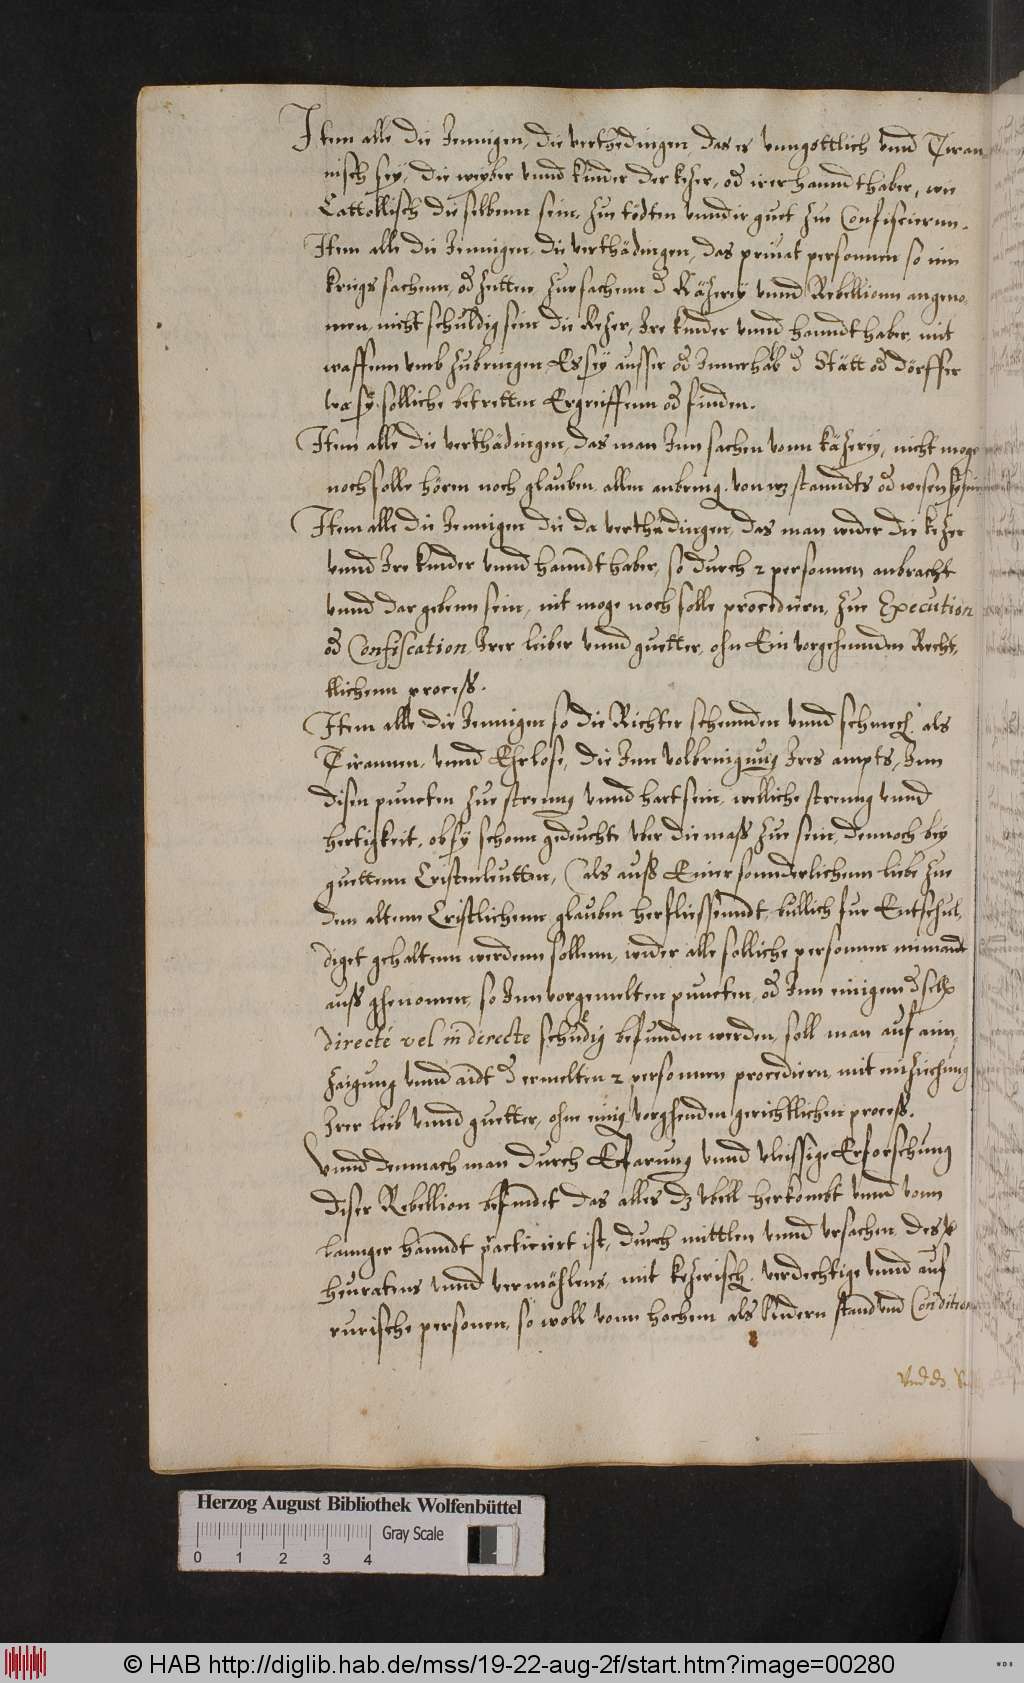 Item alle die Jennigen, die verthedingen das es vnngottlich vnnd Tiran-
nisch sey, die weyber vnnd kinder der kezer, od irer hanndthaber, wie
Cattollisch die selbenn sein, zue tödten vnnd ir guet zue Confiscierrn.
Item alle die Jennigen, die verthädingen, das priuat personnen so inn
kriegs sachenn, od zeitten, zur sachenn d Käzerey vnnd Rebellionn angeno-
men, nicht schuldig sein die Kezer, Ire kinder vnnd hanndthaber, mit
waffenn vmb zubringen Es sey ausser od Innerhalb d Stätt od dörffer
wo sy solliche betretten Ergreiffenn od finden.
Item alle die verthädingen, das man Inn sachen vonn Käzerey, nicht moge
noch solle hören noch glauben, allen anbring. von wz stanndts od wesen sy sein
Item alle die Jennigen die da verthadingen, das man wider die Kezer
vnnd Ire kinder vnnd hanndthaber, so durch 2 personnen anbracht
vnnd dar gebenn sein, nit moge noch solle procediern, zue Execution
od Confiscation Irer leiber vnnd guetter, ohn Ein vorgehennden Recht-
tlichenn process.
Item alle die Jennigen so die Richter schennden vnnd schmech. als
Tirannen, vnnd Ehrlose, die Inn volbringung Ires ampts, Inn
disen puncten zue streung vnnd hart sein, welliche streung vnnd
hertigkeit, ob sy schonn gedeucht vber die mass zue sein, dennoch bey
guettenn Cristenleutten, (als auss Einer sonnderlichenn liebe zue
den altenn Cristlichenn glauben herfliessenndt, billich fur Entschul-
diget gehaltenn werdenn sollenn, wider alle solliche personnen niemandt
auss ghenomen, so Inn vorgemelten puncten, od Inn einigem d selb
directé vel indirecte schuldig befunden werden, soll man auf ain-
zaigung vnnd aidt d ermelten 2 personnen procediern, mit einziehung
Irer leib vnnd guetter, ohn einig vorghenden gerichtlichen process.
Vnnd demnach man durch Erfarung vnnd vleissige Erforschung
diser Rebellion befindet das alles dz vbell herkombt vnnd vonn
lannger hanndt practiciert ist, durch mittlen vnnd vrsachen, des v
heuratens vnnd vermählens, mit kezerisch. verdechtige vnnd auf
rurische personen, so woll vonn hochem als Nidern stand vnd Condition
Vnd dz
Herzog August Bibliothek Wolfenbüttel
Gray Scale
0 1 2 3 4
© HAB http://diglib.hab.de/mss/19-22-aug-2f/start.htm?image=00280